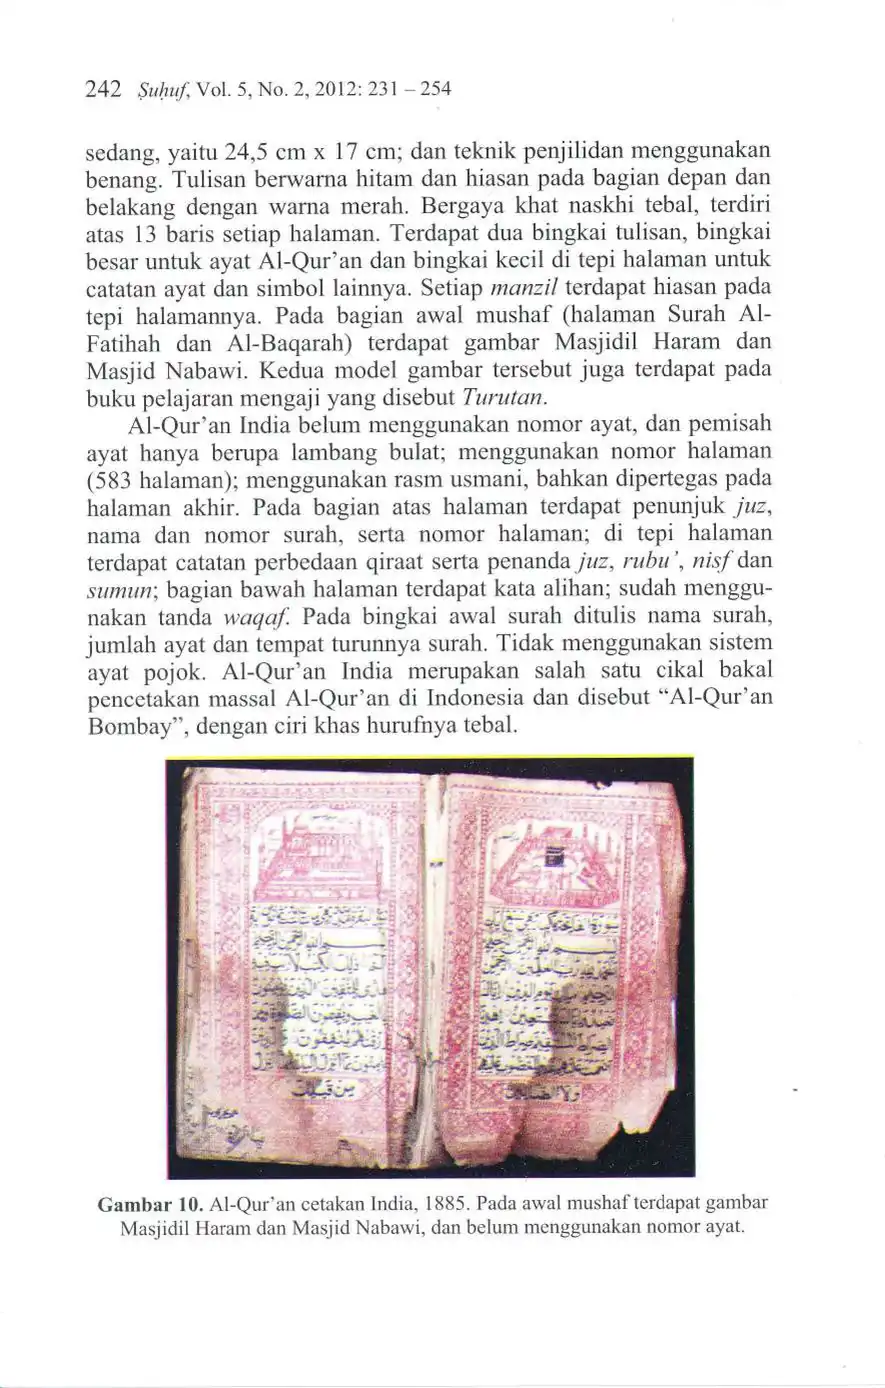 242 Ṣuḥuf, Vol. 5, No. 2, 2012: 231 – 254
sedang, yaitu 24,5 cm x 17 cm; dan teknik penjilidan menggunakan
benang. Tulisan berwarna hitam dan hiasan pada bagian depan dan
belakang dengan warna merah. Bergaya khat naskhi tebal, terdiri
atas 13 baris setiap halaman. Terdapat dua bingkai tulisan, bingkai
besar untuk ayat Al-Qur’an dan bingkai kecil di tepi halaman untuk
catatan ayat dan simbol lainnya. Setiap manzil terdapat hiasan pada
tepi halamannya. Pada bagian awal mushaf (halaman Surah Al-
Fatihah dan Al-Baqarah) terdapat gambar Masjidil Haram dan
Masjid Nabawi. Kedua model gambar tersebut juga terdapat pada
buku pelajaran mengaji yang disebut Turutan.
Al-Qur’an India belum menggunakan nomor ayat, dan pemisah
ayat hanya berupa lambang bulat; menggunakan nomor halaman
(583 halaman); menggunakan rasm usmani, bahkan dipertegas pada
halaman akhir. Pada bagian atas halaman terdapat penunjuk juz,
nama dan nomor surah, serta nomor halaman; di tepi halaman
terdapat catatan perbedaan qiraat serta penanda juz, rubu’, niṣf dan
sumun; bagian bawah halaman terdapat kata alihan; sudah menggu-
nakan tanda waqaf. Pada bingkai awal surah ditulis nama surah,
jumlah ayat dan tempat turunnya surah. Tidak menggunakan sistem
ayat pojok. Al-Qur’an India merupakan salah satu cikal bakal
pencetakan massal Al-Qur’an di Indonesia dan disebut “Al-Qur’an
Bombay”, dengan ciri khas hurufnya tebal.
ولا الضالين
من قبلك
Gambar 10. Al-Qur’an cetakan India, 1885. Pada awal mushaf terdapat gambar
Masjidil Haram dan Masjid Nabawi, dan belum menggunakan nomor ayat.